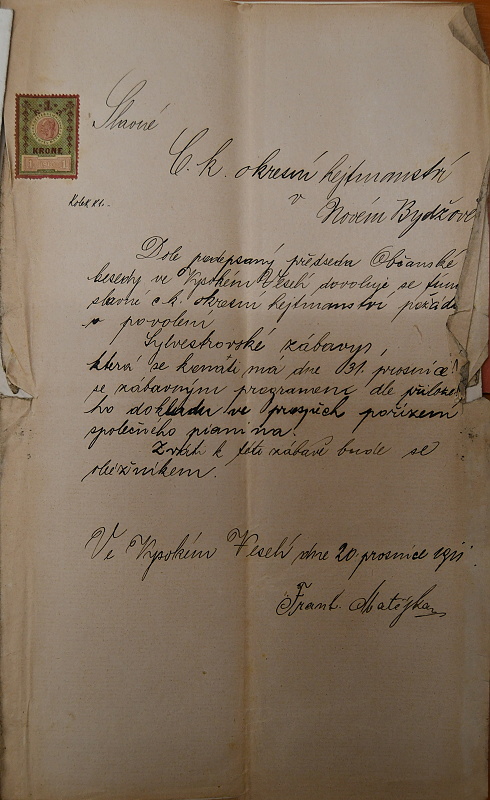 1
KRONE
Slavné
C. k. okresní hejtmanství
v
Novém Bydžově
Kolek K1.-
Dole podepsaný předseda Občanské
besedy ve Vysokém Veselí dovoluje se tím
slavné c. k. okresní hejtmanství požáda
o povolení
Sylvestrovské zábavy,
která se konati má dne 31. prosince
se zábavným programem dle přilože
ho dokladu ve prospěch pořízení
společného pianina.
k této zábavě bude se
oběžníkem.
Ve Vysokém Veselí dne 20. prosince 1911
Frant. Matějka